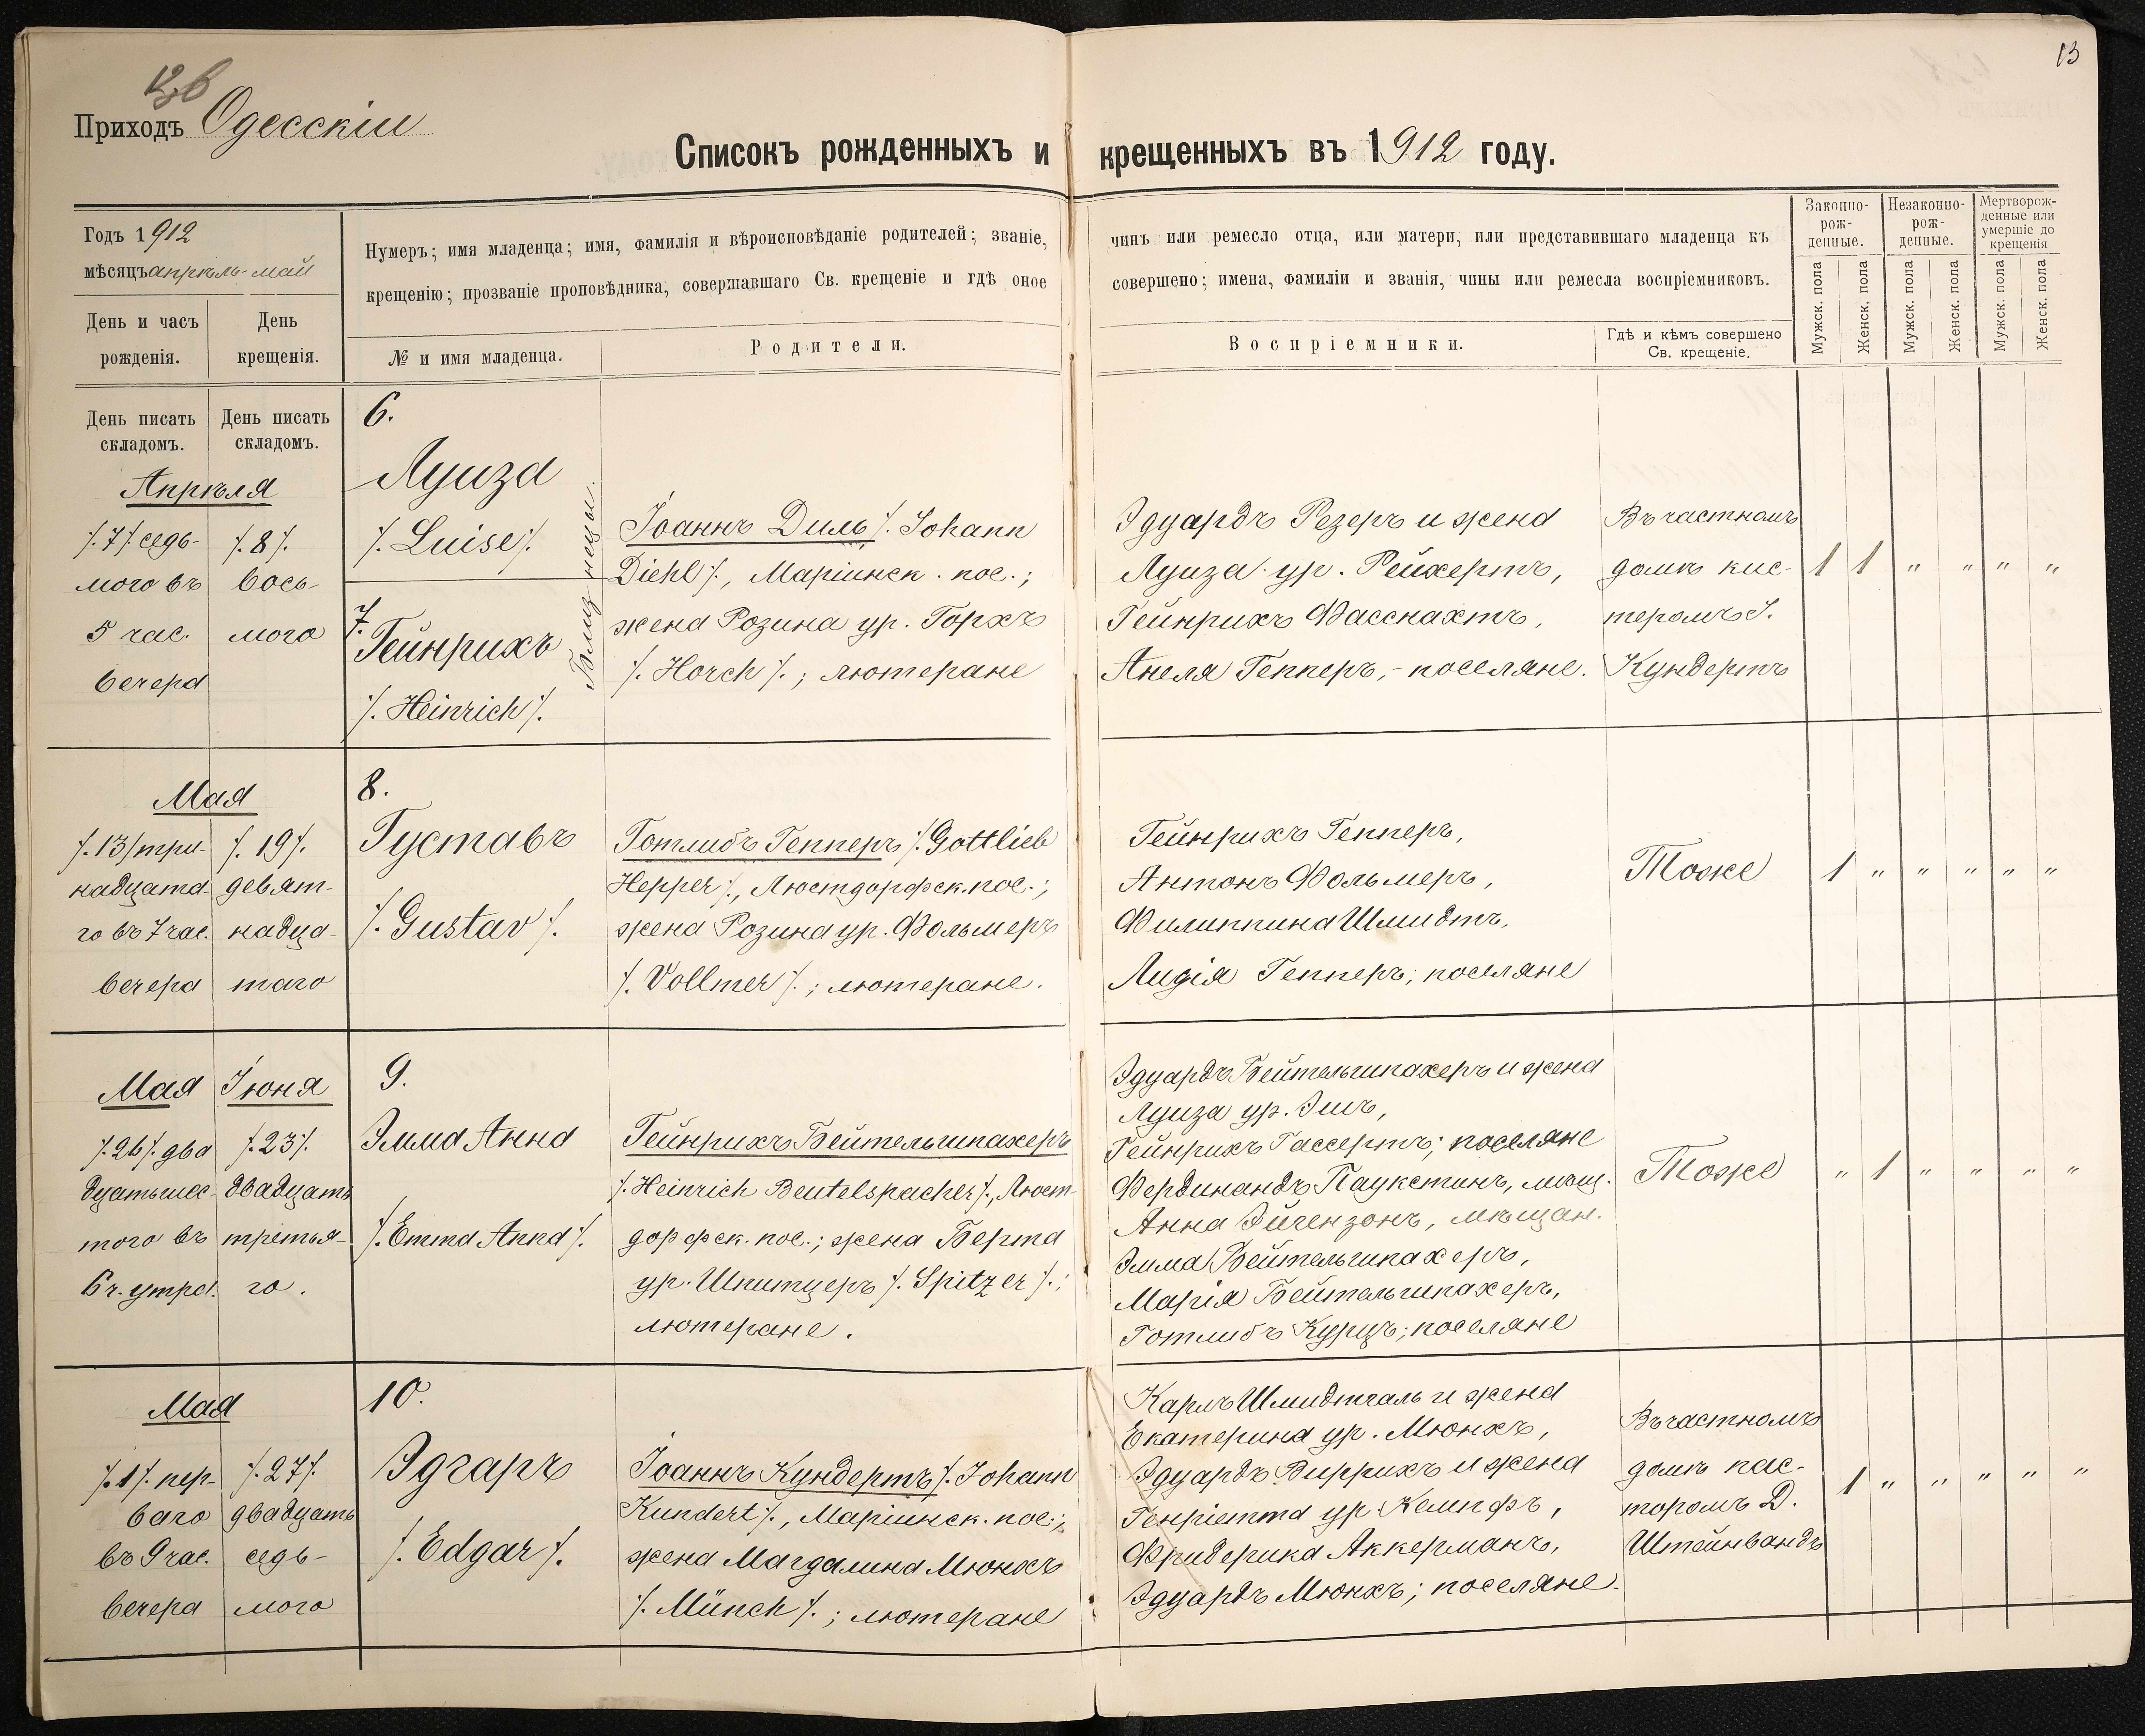 13
Приходъ Одесскій
Списокъ рожденныхъ и крещенныхъ въ 1912 году.
Годъ 1912
мѣсяцъ апрѣль-май
День и часъ рожденія.
День крещенія.
Нумеръ; имя младенца; имя, фамилія и вѣроисповѣданіе родителей; званіе, чинъ или ремесло отца, или матери, или представившаго младенца къ
крещенію; прозваніе проповѣдника, совершавшаго Св. крещеніе и гдѣ оное совершено; имена, фамиліи и званія, чины или ремесла воспріемниковъ.
№ и имя младенца.
Родители.
Воспріемники.
Гдѣ и кѣмъ совершено
Св. крещеніе.
Законно-
рож-
денные.
Незаконно-
рож-
денные.
Мертворож-
денные или
умершіе до
крещенія
Мужск. пола
Женск. пола
Мужск. пола
Женск. пола
Мужск. пола
Женск. пола
День писать
складомъ.
День писать
складомъ.
Апрѣля
/.7/. седь-
мого въ
5 час.
вечера
/.8/.
вось-
мого
6.
Луиза
/.Luise/.
7.
Гейнрихъ
/.Heinrich/.
Близнецы.
Іоаннъ Диль /.Johann
Diehl/., Маріинск. пос.;
жена Розина ур. Горхъ
/.Horch/.; лютеране
Эдуардъ Резеръ и жена
Луиза ур. Рейхертъ,
Гейнрихъ Фасснахтъ,
Анеля Гепперъ,-поселяне.
Въ частномъ
домѣ кис-
теромъ І.
Кундертъ
1 1 " " " "
Мая
/.13/ три-
надцата-
го въ 7 час.
вечера
/.19/.
девят-
надца-
таго
8.
Густавъ
/.Gustav/.
Готлибъ Гепперъ /.Gottlieb
Hepper/., Люстдорфск. пос.;
жена Розина ур. Фольмеръ
/.Vollmer/.; лютеране.
Гейнрихъ Гепперъ,
Антонъ Фольмеръ,
Филиппина Шмидтъ,
Лидія Гепперъ; поселяне
Тоже
1 " " " " "
Мая
/.26/. два
дцатьшес-
того въ
6 ч. утра.
Іюня
/.23/.
двадцать
третья-
го.
9.
Эмма Анна
/.Emma Anna/.
Гейнрихъ Бейтельшпахеръ
/.Heinrich Beutelspacher/., Люст-
дорфск. пос.; жена Берта
ур. Шпитцеръ /.Spitzer/.;
лютеране.
Эдуардъ Бейтельшпахеръ и жена
Луиза ур. Эшъ,
Гейнрихъ Гассертъ; поселяне
Фердинандъ Паукстинъ, мѣщ.
Анна Эйгензонъ, мѣщан.
Эмма Бейтельшпахеръ,
Марія Бейтельшпахеръ,
Готлибъ Курцъ; поселяне
Тоже
" 1 " " " "
Мая
/.1/. пер-
ваго
въ 9 час.
вечера
/.27/.
двадцать
седь-
мого
10.
Эдгаръ
/.Edgar/.
Іоаннъ Кундертъ /.Johann
Kundert/., Маріинск. пос.;
жена Магдалина Мюнхъ
/.Münch/.; лютеране
Карлъ Шмидтгаль и жена
Екатерина ур. Мюнхъ,
Эдуардъ Виррихъ и жена
Генріетта ур. Кемпфъ,
Фридерика Аккерманъ,
Эдуардъ Мюнхъ; поселяне.
Въ частномъ
домѣ пас-
торомъ Д.
Штейнвандъ
1 " " " " "